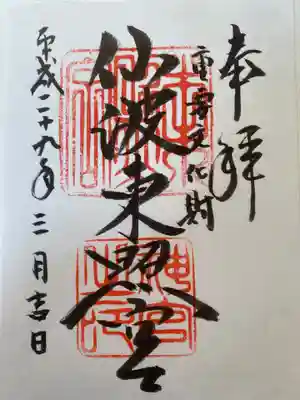 奉拝
重要文化財
仙波東照宮
平成二十九年三月吉日